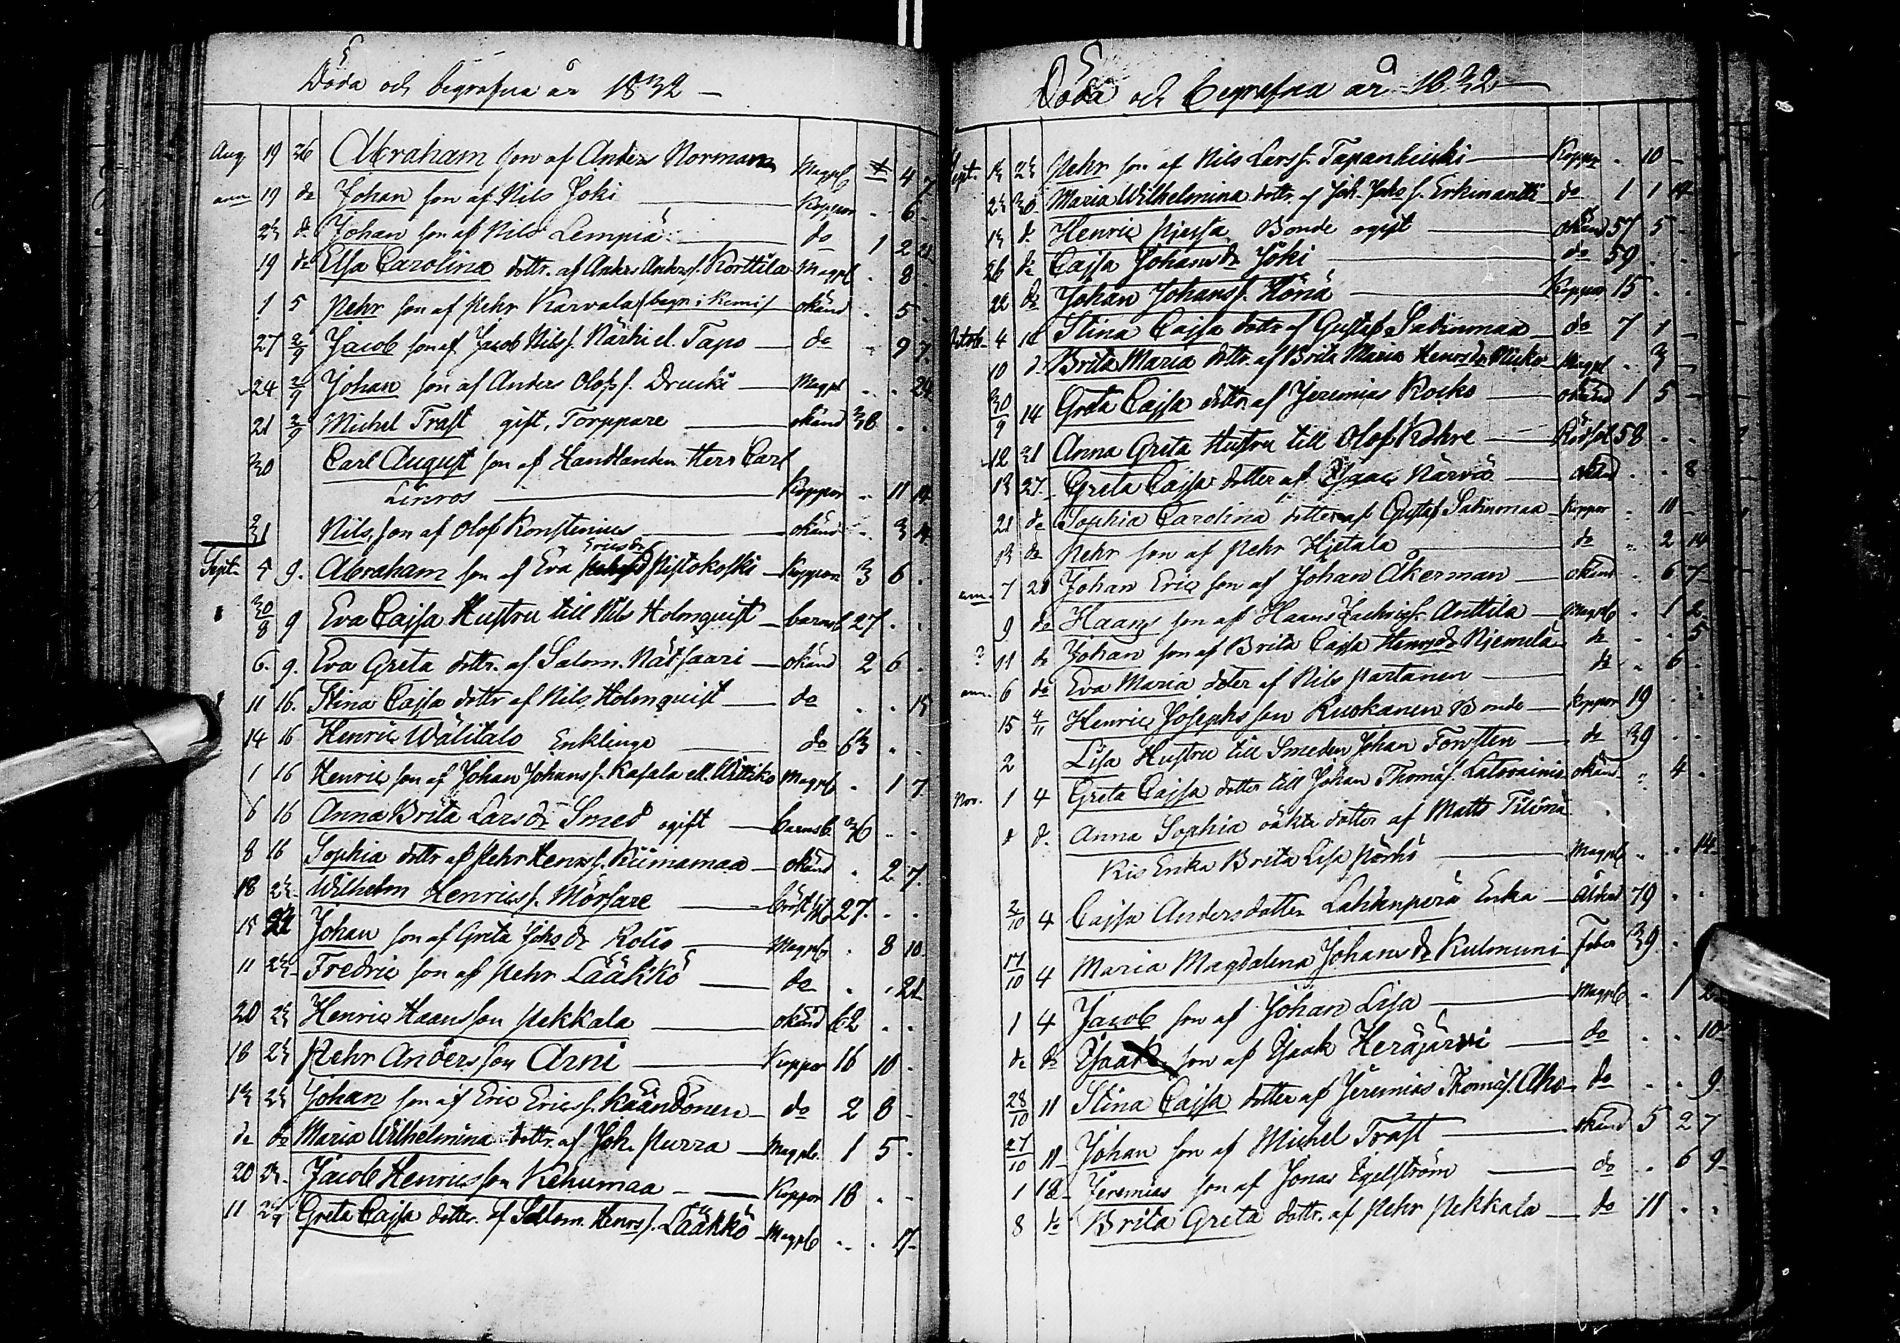 Döda och begrafna år 1832 –
Aug. 19 26 Abraham son af Anders Normann Magpl. 4 7
19 do Johan son af Nils Joki — Koppor . 6 .
23 do Johan son af Nils Lempiä — do 1 2 21
19 do Elsa Carolina dottr. af Anders Anderss. Korttila Magpl. . 8 .
1 5 Pehr son af Pehr Karvala (begr. i Kemi) okänd . 5 .
27 2/9 Jacob son af Jacob Nilss. Närhi el. Tapo — do . 9 7
24 2/9 Johan son af Anders Olofs s. Drucki — Magpl . . 24
21 2/9 Michel Trast gift. Torppare — okänd 38 . .
30 Carl August son af Handlanden Herr Carl
Linros — Koppor . 11 14
31 Nils, son af Olof Konstenius — okänd . 3 14
Ericsdr
Sept. 5 9. Abraham son af Eva Pistokoski – Koppor 3 6 .
30/8 9 Eva Cajsa Hustru till Nils Holmquist – barnsb. 27 . .
6. 9. Eva Greta dottr. af Salom. Nätsaari — okänd 2 6 .
11 16. Stina Cajsa dottr af Nils Holmquist — do . . 15
14 16 Henric Wälitalo Enklinge — do 63 . .
1 16 Henric son af Johan Johanss. Kasala ell. Wittiko Magpl. . 1 7
6 16 Anna Brita Larsdr Smed ogift — barnsb. 36 . .
8 16 Sophia dottr af Pehr Henrss. Kiimamaa — okänd . 2 7.
18 23. Wilhelm Henricss. Mörsare — 27. . .
15 Johan son af Greta Johsdr Kolis — Magpl. . 8 10
11 23 Fredric son af Pehr Lääkkö — do . . 21
20 23 Henric Haansson Pekkala — okänd 62 . .
18 23 Pehr Andersson Arni — Koppor 16 10 .
13 23 Johan son af Eric Ericss. Käändönen — do 2 8 .
do do Maria Wilhelmina dottr. af Joh. Purra — Magpl. 1 5 .
20 23. Jacob Henricsson Kehumaa — Koppor 18 . .
11 Greta Cajsa dottr. af Sallom. Henrss. Lääkkö – Magpl. . . 17.
Döda och begrafna år 1832 —
Sept. 13 23 Pehr son af Nils Larss. Tapanhiiski — Koppr . 10 –
23 30 Maria Wilhelmina dottr. af Joh. Johss. Erkinantti – do 1 1 14
13 do Henric Pjessa, Bonde ogift — okänd 57 5 .
26 do Cajsa Johansdr Joki — do 59 . .
22 do Johan Johanss. Hönä — Koppor 15 . .
Octob. 4 14 Stina Cajsa dottr af Gustaf Satinmaa — do 7 1 –
10 d. Brita Maria dottr. af Brita Maria Henrsdr — Magpl . 3 –
30/9 14 Greta Cajsa dottr. af Jeremias Rocko — okänd 1 5 –
12 21 Anna Greta Hustru till Olof Röhre — Rödsot 58 . .
13 27. Greta Cajsa dotter af Isaac Närvä — okänd . . 8
21 do Sophia Carolina dotter af Gustaf Satinmaa – Koppor . 11 –
13 do Pehr son af Pehr Hietala — do . 2 14
7 28 Johan Eric son af Johan Åkerman — okänd . 6 7
9 do Haans son af Haans Zachriss. Anttila — Magpl. . 1 2
? 11 do Johan son af Brita Cajsa Henrsdr Niemelä — do . . 5
6 do Eva Maria doter af Nils Partanen — do . 6 .
15 4/11 Henric Josephsson Ruokanen Bonde — Koppor 19 . .
2 Lisa Hustru till Smeden Johan Forsten — do 39 . .
Nov. 1 4 Greta Cajsa dotter till Johan Thomass. Latvainio okänd . 4 .
d d. Anna Sophia oäkta dotter af Matts
Enka Brita Lisa Pörhö — Magpl. . . 14
2/10 4 Cajsa Andersdotter Lahhenperä Enka — Ålder 79 . .
17/10 4 Maria Magdalena Johansdr Kulmuni feber 39. .
1 4 Jacob son af Johan Lisa — Magpl. . 1 2
do do Isaak son af Isak Heräjärvi — do . . 10
28/10 11 Stina Cajsa dotter af Jeremias Thomass. Aho – do . . 9
27/10 11 Johan son af Michel Trast — okänd 5 2 7
1 18 Jeremias son af Jonas Egelström — do . 6 9
8 do Brita Greta dottr. af Pehr Pekkala — do 11 . .